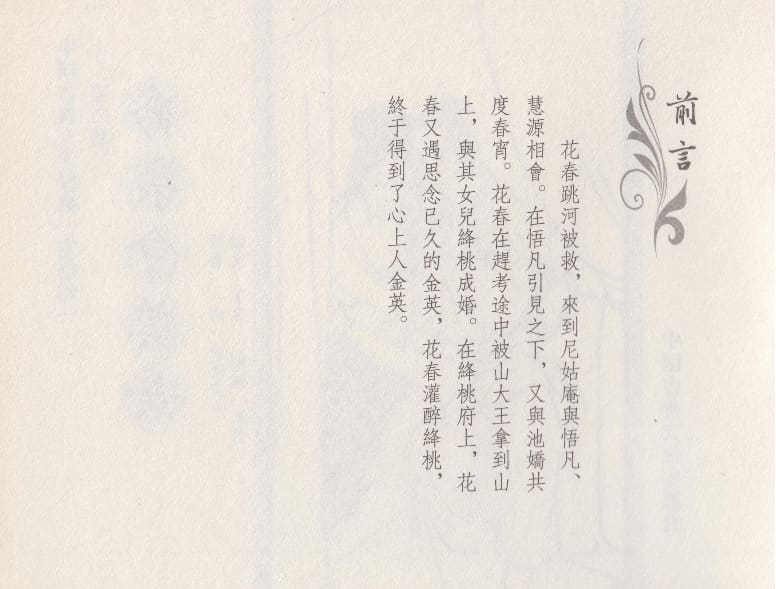 前言
花春跳河被救，來到尼姑庵與悟凡、
慧源相會。在悟凡引見之下，又與池嬌共
度春宵。花春在趕考途中被山大王拿到山
上，與其女兒絳桃成婚。在絳桃府上，花
春又遇思念已久的金英，花春灌醉絳桃，
終于得到了心上人金英。